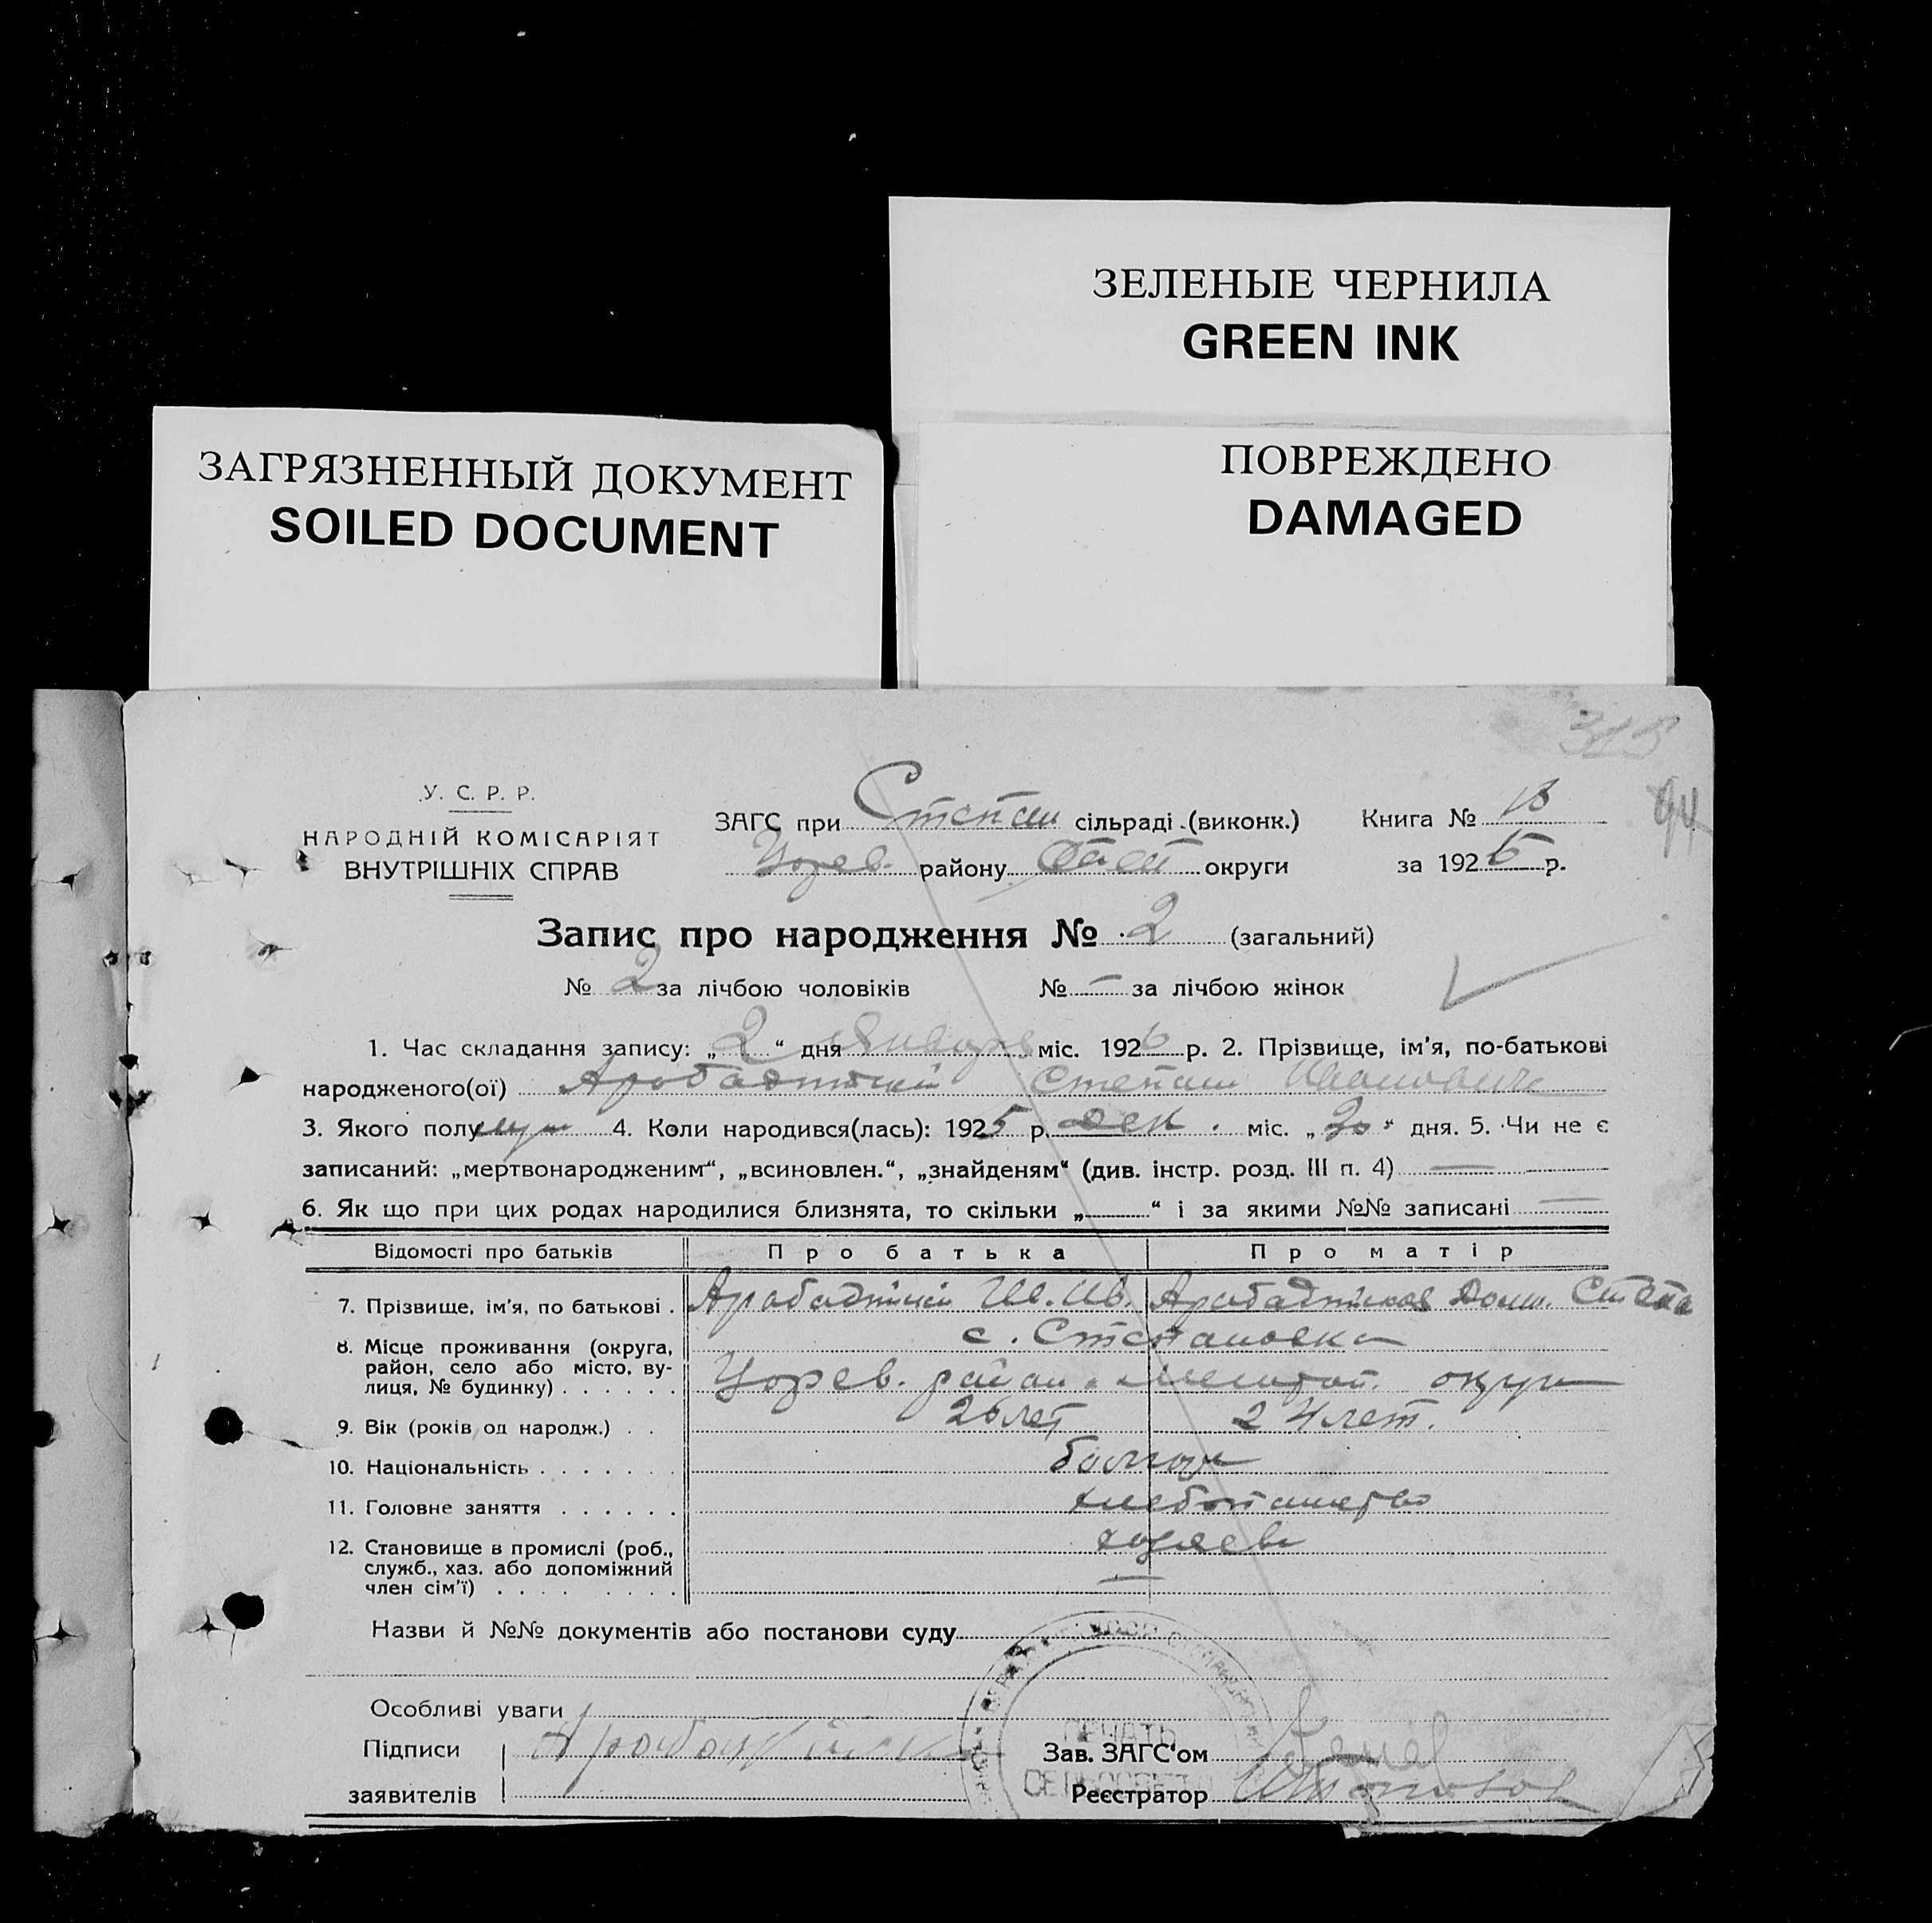 ЗЕЛЕНЫЕ ЧЕРНИЛА
GREEN INK
ЗАГРЯЗНЕННЫЙ ДОКУМЕНТ
SOILED DOCUMENT
ПОВРЕЖДЕНО
DAMAGED
315
94
У. С. Р. Р.
НАРОДНІЙ КОМІСАРІЯТ
ВНУТРІШНІХ СПРАВ
ЗАГС при Степан сільраді (виконк.)
Цорев. району округи
Книга №
за 1926 р.
Запис про народження № 2 (загальний)
№ 2 за лічбою чоловіків № — за лічбою жінок
1. Час складання запису: „ 2 “ дня Января міс. 1926 р. 2. Прізвище, ім'я, по-батькові
народженого(ої) Арабаджий Степан Иванович
3. Якого полу муж 4. Коли народився(лась): 1925 р. дек. міс. „30“ дня. 5. Чи не є
записаний: „мертвонародженим“, „всиновлен.“, „знайденям“ (див. інстр. розд. III п. 4) —
6. Як що при цих родах народилися близнята, то скільки „ “ і за якими №№ записані —
Відомості про батьків Про батька Про матір
7. Прізвище, ім'я, по батькові . Арабаджий Ив. Ив. Арабаджиева Домн. Степа
8. Місце проживання (округа, район, село або місто, вулиця, № будинку) . . . . . . с. Степановка
Цорев. район. Мелитоп. округи
9. Вік (років од народж.) . . 26 лет 24 лет.
10. Національність . . . . . . . болгар
11. Головне заняття . . . . . . хлебопашество
12. Становище в промислі (роб., служб., хаз. або допоміжний член сім'ї) . . . . . . . . хозяева
Назви й №№ документів або постанови суду
Особливі уваги
Підписи
заявителів
ПЕЧАТЬ
СЕЛЬСОВЕТ
Зав. ЗАГС'ом
Реєстратор